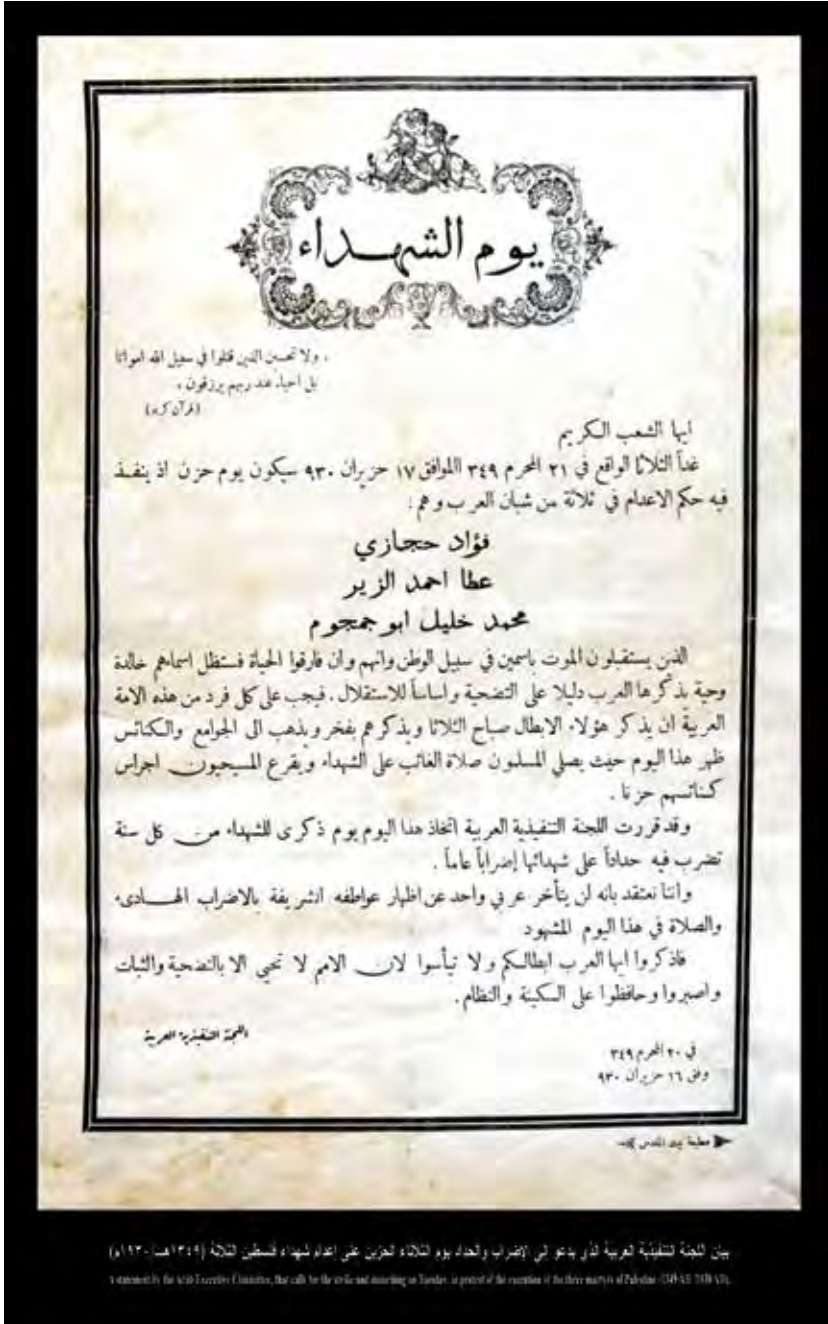 يوم الشهداء
« ولا تحسبن الذين قتلوا في سبيل الله امواتا
بل احياء عند ربهم يرزقون »
(قرآن كريم)
ايها الشعب الكريم
غداً الثلاثا الواقع في ٢١ المحرم ٣٤٩ الموافق ١٧ حزيران ٩٣٠ سيكون يوم حزن اذ ينفذ
فيه حكم الاعدام في ثلاثة من شبان العرب وهم :
فؤاد حجازي
عطا احمد الزير
محمد خليل ابو جمجوم
الذين يستقبلون الموت باسمين في سبيل الوطن وانهم وان فارقوا الحياة فستظل اسماءهم خالدة
وحية يذكرها العرب دليلا على التضحية واساساً للاستقلال . فيجب على كل فرد من هذه الامة
العربية ان يذكر هؤلاء الابطال صباح الثلاثا ويذكرهم بفخر ويذهب الى الجوامع والكنائس
ظهر هذا اليوم حيث يصلي المسلمون صلاة الغائب على الشهداء ويقرع المسيحيون اجراس
كنائسهم حزنا .
وقد قررت اللجنة التنفيذية العربية اتخاذ هذا اليوم يوم ذكرى للشهداء من كل سنة
تضرب فيه حداداً على شهدائها إضراباً عاماً .
وأننا نعتقد بانه لن يتأخر عربي واحد عن اظهار عواطفه الشريفة بالاضراب الهادىء
والصلاة في هذا اليوم المشهود
فاذكروا ايها العرب ابطالكم ولا تيأسوا لان الامم لا تحيي الا بالتضحية والثبات
واصبروا وحافظوا على السكينة والنظام .
اللجنة التنفيذية العربية
في ٢٠ المحرم ٣٤٩
وفق ١٦ حزيران ٩٣٠
مطبعة بيت المقدس
بيان اللجنة التنفيذية العربية الذي يدعو الى الإضراب والحداد يوم الثلاثاء الحزين على إعدام شهداء فلسطين الثلاثة (١٣٤٩هـ - ١٩٣٠م)
A statement by the Arab Executive Committee, that calls for the strike and mourning on Tuesday, in protest of the execution of the three martyrs of Palestine (1349 AH / 1930 AD).